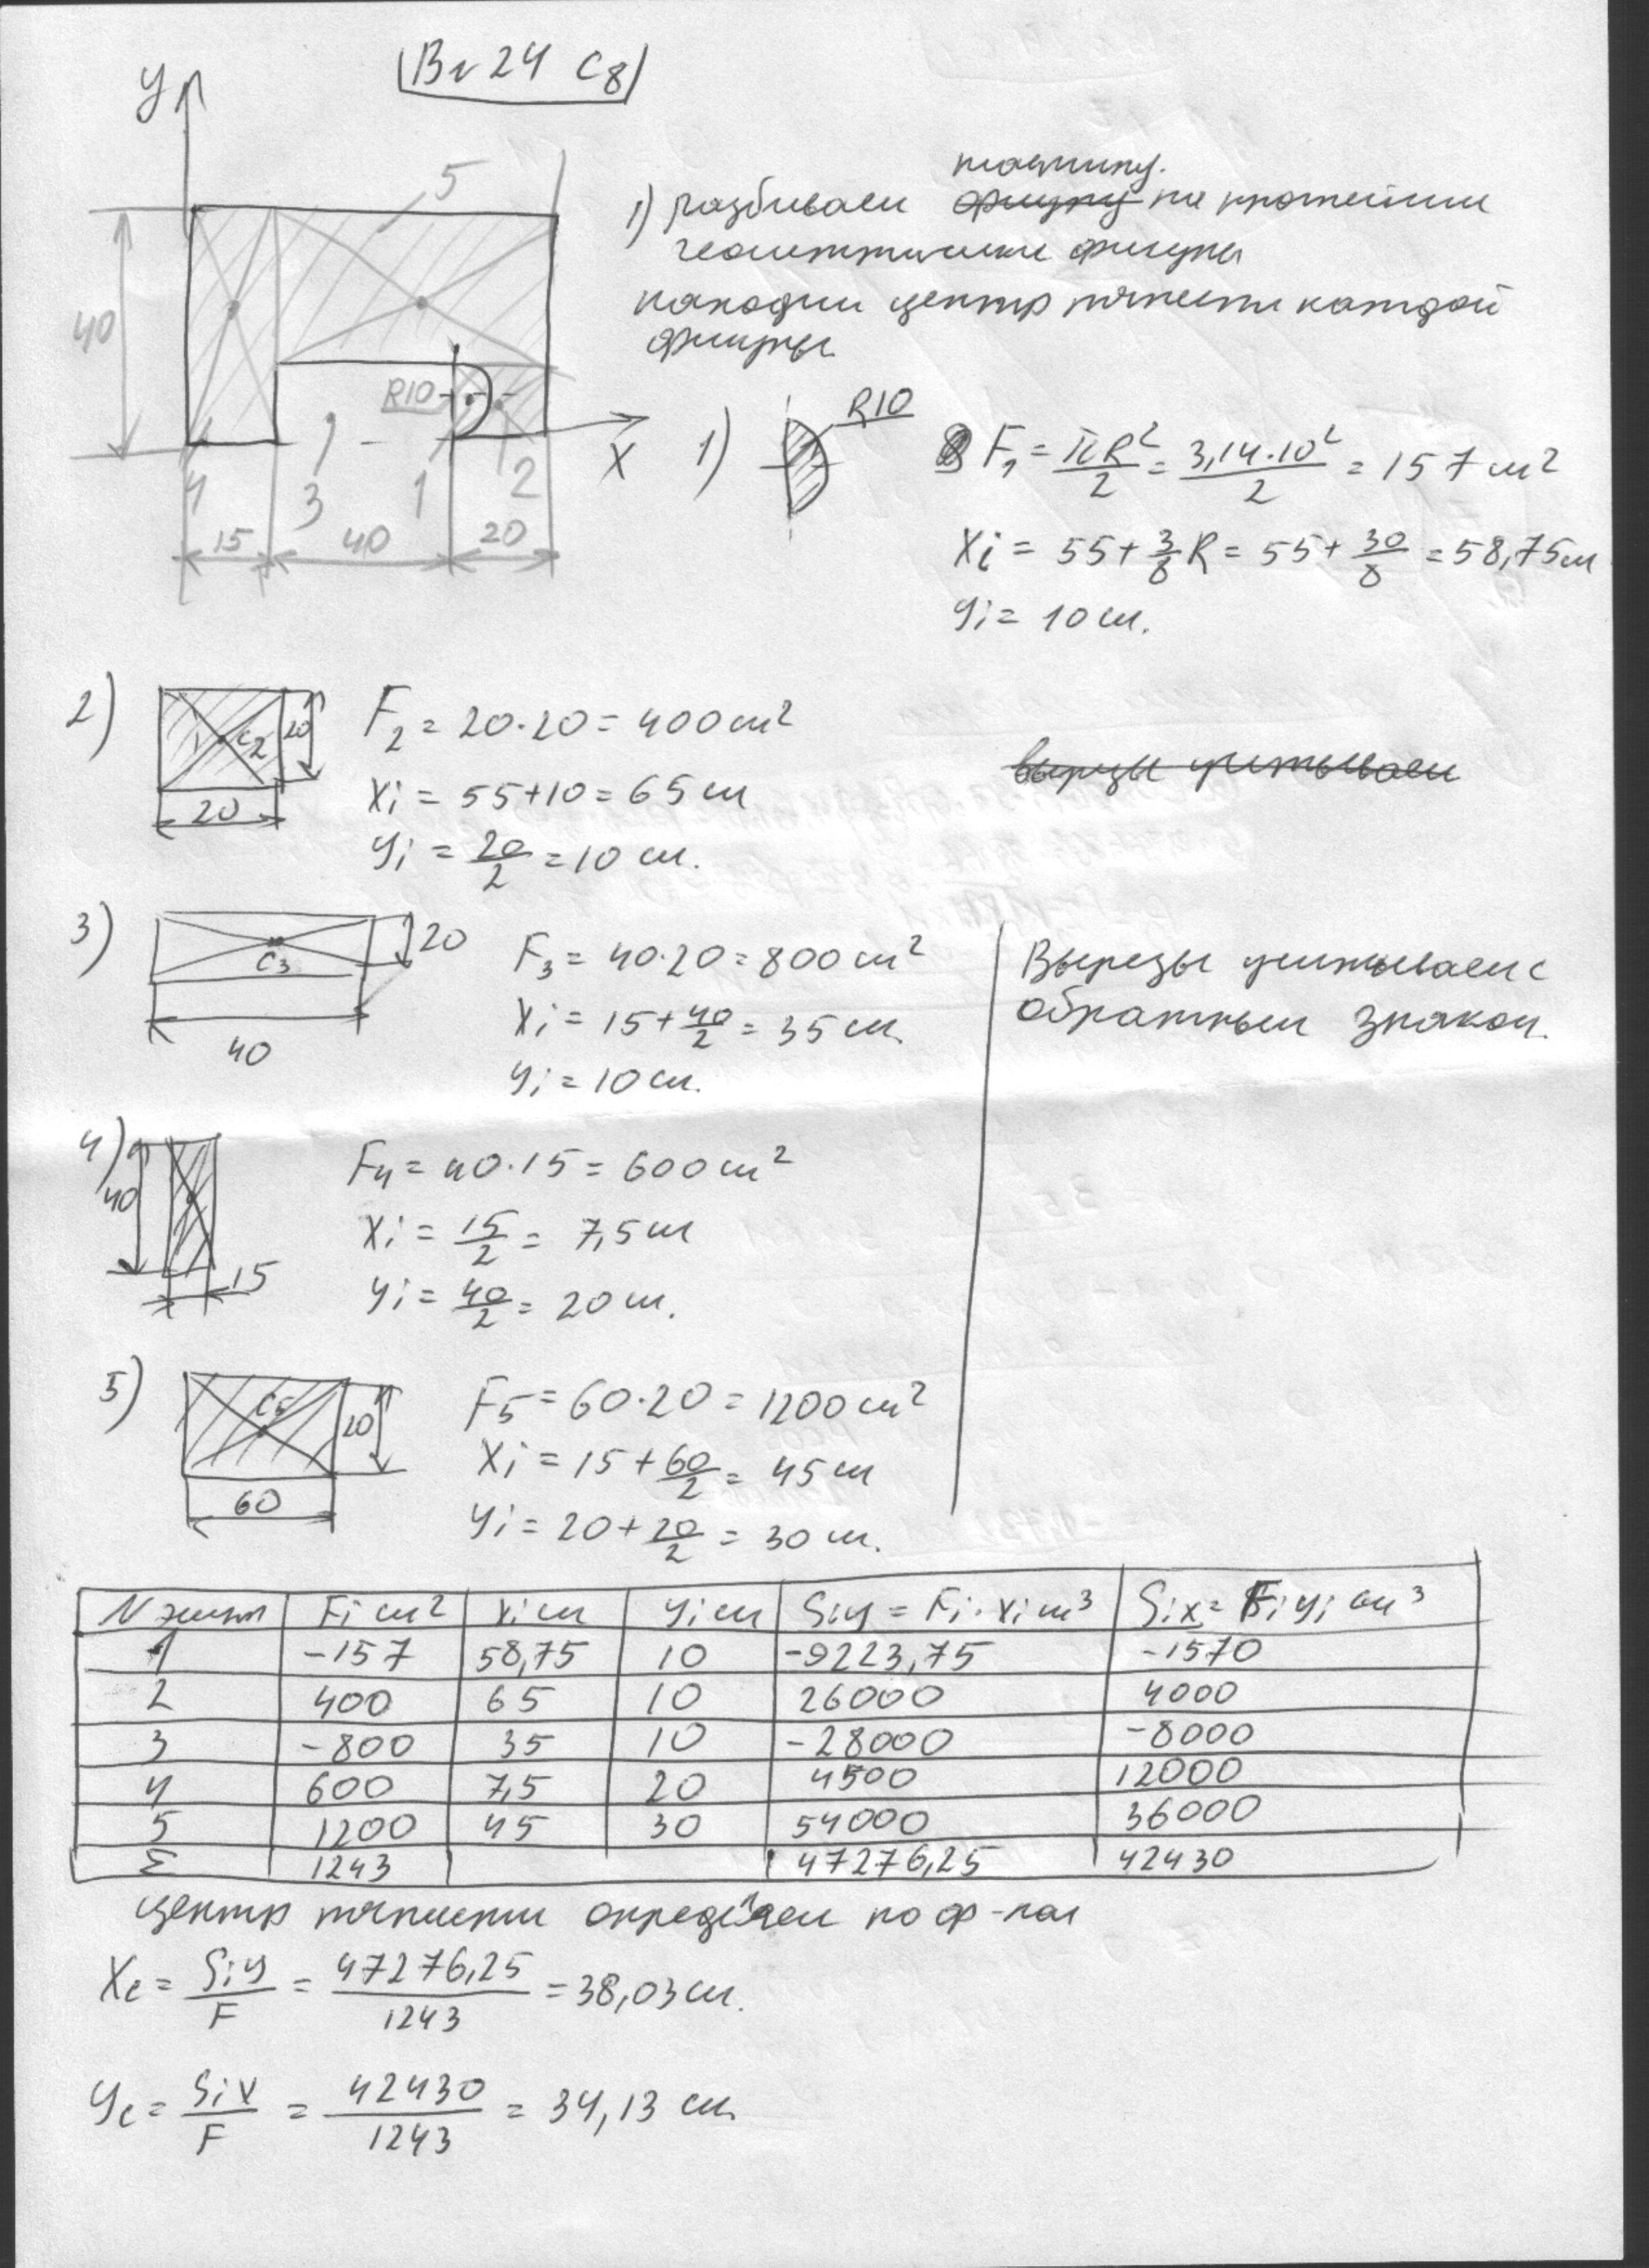 Вг 24 С8
y
5
1) разбиваем фигуру пластину. на простейшие
геометрические фигуры
находим центр тяжести каждой
фигуры
40
R10
X
4
3
1
2
15
40
20
1)
R10
F₁ = πR²/2 = 3,14·10²/2 = 157 см²
Xi = 55 + 3/8 R = 55 + 30/8 = 58,75 см
Yi = 10 см.
2)
C2
20
20
F₂ = 20·20 = 400 см²
Xi = 55+10 = 65 см
Yi = 20/2 = 10 см.
вырезы учитываем
3)
C3
20
40
F₃ = 40·20 = 800 см²
Xi = 15 + 40/2 = 35 см
Yi = 10 см.
Вырезы учитываем с
обратным знаком
4)
40
15
F₄ = 40·15 = 600 см²
Xi = 15/2 = 7,5 см
Yi = 40/2 = 20 см.
5)
C5
20
60
F₅ = 60·20 = 1200 см²
Xi = 15 + 60/2 = 45 см
Yi = 20 + 20/2 = 30 см.
N Fi см² Xi см Yi см Siy = Fi·Xi см³ Six = Fi Yi см³
1 -157 58,75 10 -9223,75 -1570
2 400 65 10 26000 4000
3 -800 35 10 -28000 -8000
4 600 7,5 20 4500 12000
5 1200 45 30 54000 36000
Σ 1243 47276,25 42430
центр тяжести определяем по ф-лам
Xc = Siy/F = 47276,25/1243 = 38,03 см.
Yc = Six/F = 42430/1243 = 34,13 см